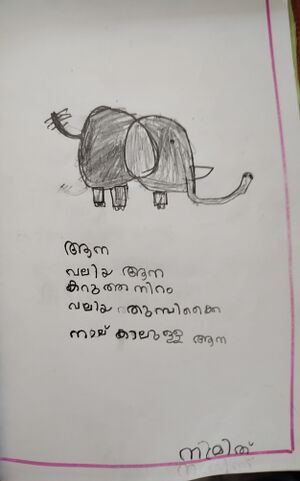 ആന
വലിയ ആന
കറുത്ത നിറം
വലിയ തുമ്പികൈ
നാല് കാലുള്ള ആന
നിമിത്